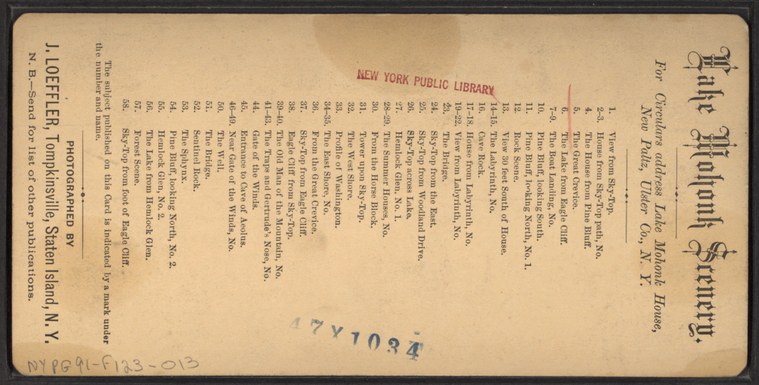 Lake Mohonk Scenery.
For Circulars address Lake Mohonk House,
New Paltz, Ulster Co., N. Y.
1. View from Sky-Top.
2-3. House from Sky-Top path, No.
4. The House from Pine Bluff.
5. The Great Crevice.
6. The Lake from Eagle Cliff.
7-9. The Boat Landing, No.
10. Pine Bluff, looking South.
11. Pine Bluff, looking North, No. 1.
12. Rock Scene.
13. View 30 feet South of House.
14-15. The Labyrinth, No.
16. Cave Rock.
17-18. House from Labyrinth, No.
19-22. View from Labyrinth, No.
23. The Bridge.
24. Sky-Top from the East.
25. Sky-Top from Woodland Drive.
26. Sky-Top across Lake.
27. Hemlock Glen, No. 1.
28-29. The Summer Houses, No.
30. From the Horse Block.
31. Tower upon Sky-Top.
32. The West Shore.
33. Profile of Washington.
34-35. The East Shore, No.
36. From the Great Crevice.
37. Sky-Top from Eagle Cliff.
38. Eagle Cliff from Sky-Top.
39-40. The Old Man of the Mountain, No.
41-43. The Traps and Gertrude's Nose, No.
44. Gate of the Winds.
45. Entrance to Cave of Æolus.
46-49. Near Gate of the Winds, No.
50. The Well.
51. The Bridge.
52. Sentinel Rock.
53. The Sphynx.
54. Pine Bluff, looking North, No. 2.
55. Hemlock Glen, No. 2.
56. The Lake from Hemlock Glen.
57. Forest Scene.
58. Sky-Top from foot of Eagle Cliff.
The subject published on this Card is indicated by a mark under
the number and name.
PHOTOGRAPHED BY
J. LOEFFLER, Tompkinsville, Staten Island, N. Y.
N. B.—Send for list of other publications.
NEW YORK PUBLIC LIBRARY
47X1034
NYPG91-F123-013